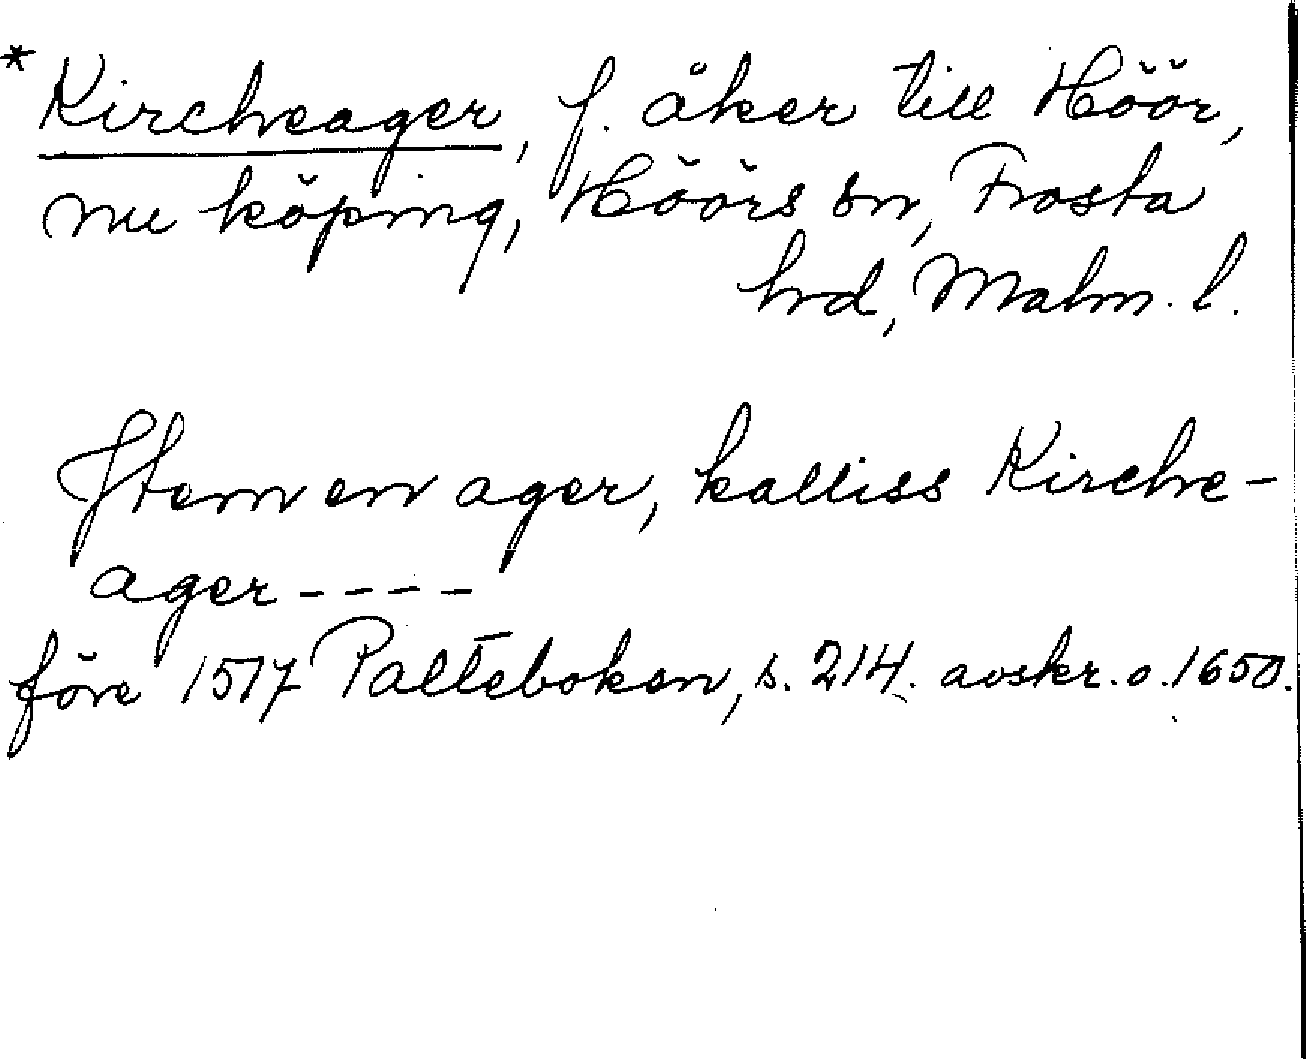 * Kircheager, f. åker till Höör,
nu köping, Höörs sn, Frosta
hrd, Malm. l.
Item en ager, kalliss Kirche-
ager ----
före 1517 Palteboken, s. 214. avskr. o. 1650.